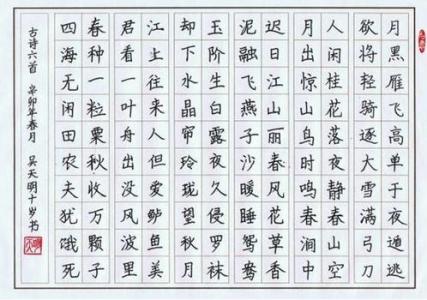 月黑雁飞高单于夜遁逃
欲将轻骑逐大雪满弓刀
人闲桂花落夜静春山空
月出惊山鸟时鸣春涧中
迟日江山丽春风花草香
泥融飞燕子沙暖睡鸳鸯
玉阶生白露夜久侵罗袜
却下水晶帘玲珑望秋月
江上往来人但爱鲈鱼美
君看一叶舟出没风波里
春种一粒粟秋收万颗子
四海无闲田农夫犹饿死
古诗六首 辛卯年春月 吴天明十岁书